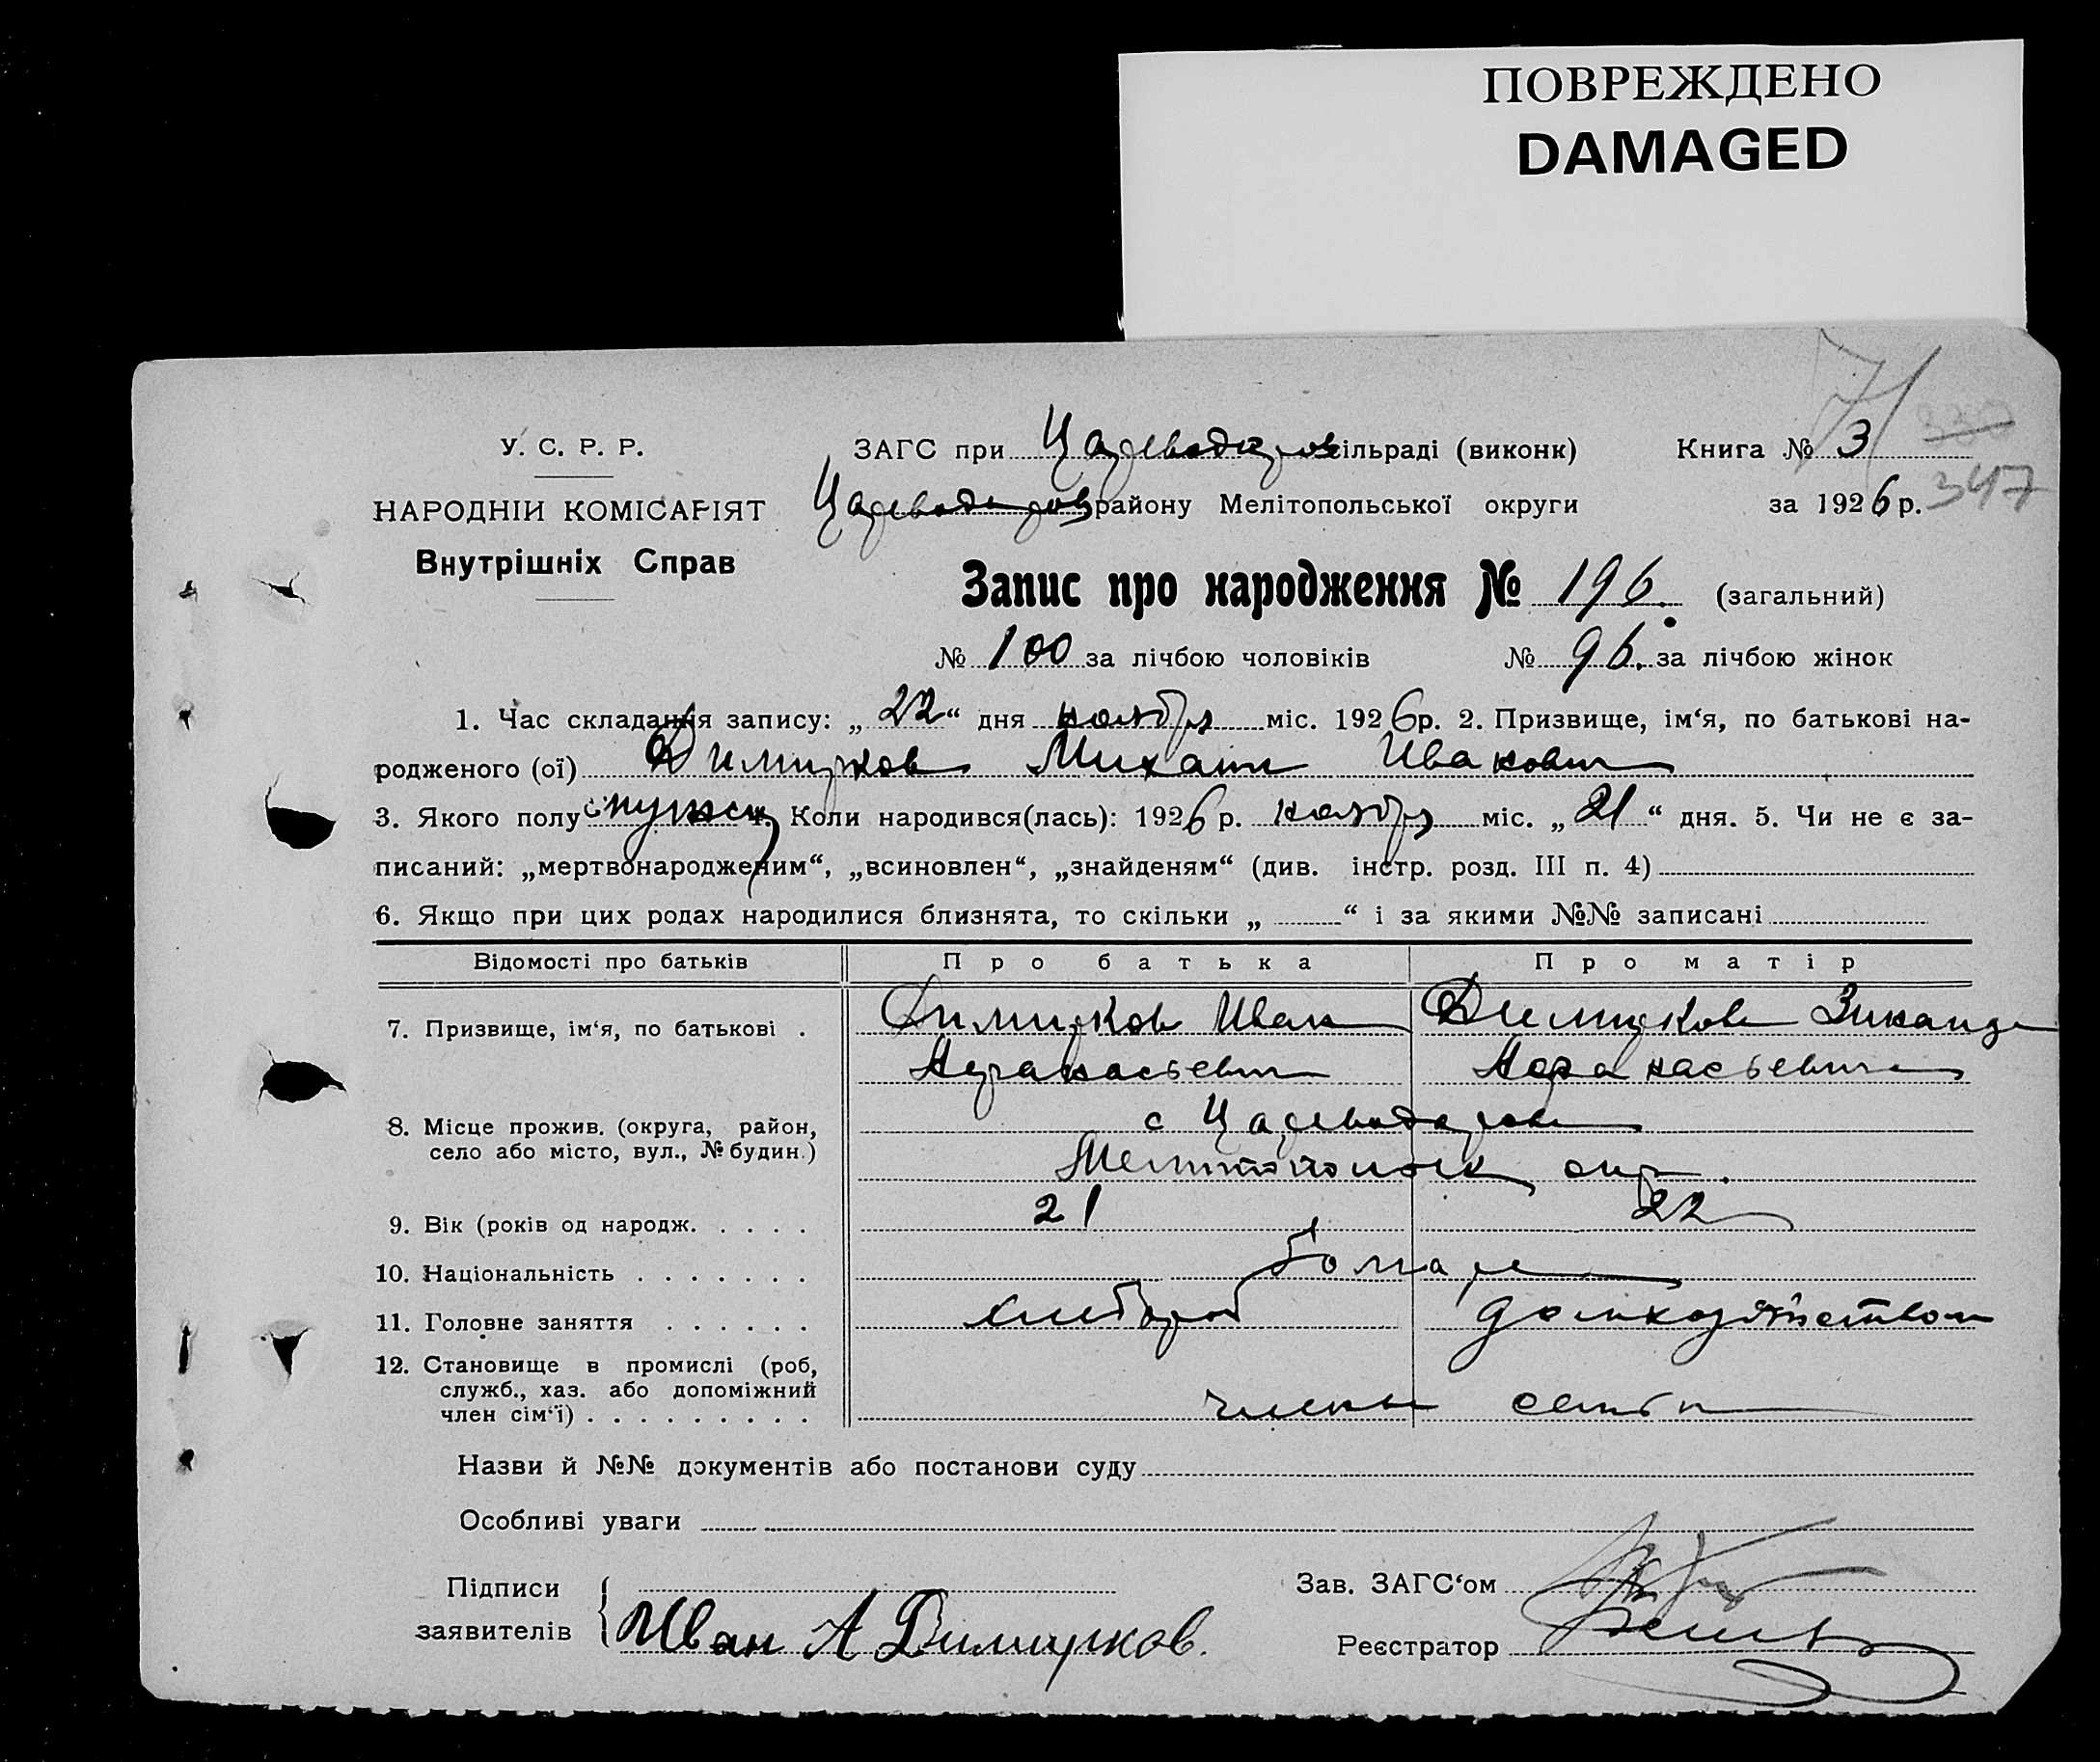 ПОВРЕЖДЕНО
DAMAGED
У. С. Р. Р.
НАРОДНІЙ КОМІСАРІЯТ
Внутрішніх Справ
ЗАГС при Цареводаров сільраді (виконк)
Цареводаров району Мелітопольської округи
Книга № 3
за 1926 р.
71
330
347
Запис про народження № 196. (загальний)
№ 100 за лічбою чоловіків № 96. за лічбою жінок
1. Час складання запису: „22“ дня ноября міс. 1926 р. 2. Призвище, ім‘я, по батькові на-
родженого (ої) Димитров Михаил Иванович
3. Якого полу мужск 4. Коли народився(лась): 1926 р. ноября міс. „21“ дня. 5. Чи не є за-
писаний: „мертвонародженим“, „всиновлен“, „знайденям“ (див. інстр. розд. III п. 4)
6. Якщо при цих родах народилися близнята, то скільки „ “ і за якими №№ записані
Відомості про батьків Про батька Про матір
7. Призвище, ім‘я, по батькові . Димитров Иван
Афанасьевич
Афанасьевна
8. Місце прожив. (округа, район,
село або місто, вул., № будин.)
с Цареводаров
Мелитопольск окр.
9. Вік (років од народж. . . . . 21 22
10. Національність . . . . . . . Болгаре
11. Головне заняття . . . . . . хлебороб домхозяйством
12. Становище в промислі (роб,
служб., хаз. або допоміжний
член сім‘ї) . . . . . . . . . члены семьи
Назви й №№ документів або постанови суду
Особливі уваги
Підписи
заявителів
Иван А Димитров.
Зав. ЗАГС‘ом
Реєстратор